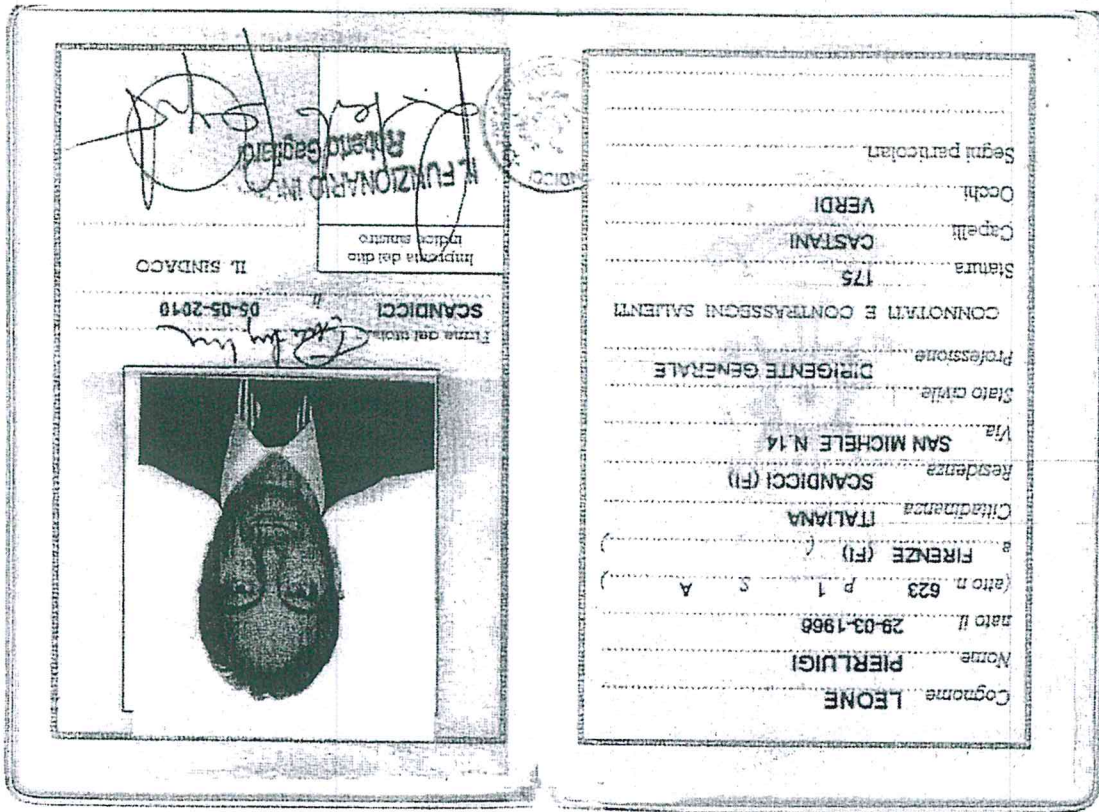 Cognome LEONE
Nome PIERLUIGI
nato il 29-03-1966
(atto n. 623 P 1 S A )
a FIRENZE (FI) ( )
Cittadinanza ITALIANA
Residenza SCANDICCI (FI)
Via SAN MICHELE N.14
Stato civile
Professione DIRIGENTE GENERALE
CONNOTATI E CONTRASSEGNI SALIENTI
Statura 175
Capelli CASTANI
Occhi VERDI
Segni particolari
Firma del titolare
SCANDICCI il 05-05-2010
IL SINDACO
Impronta del dito
indice sinistro
IL FUNZIONARIO
Roberto Gagliardi